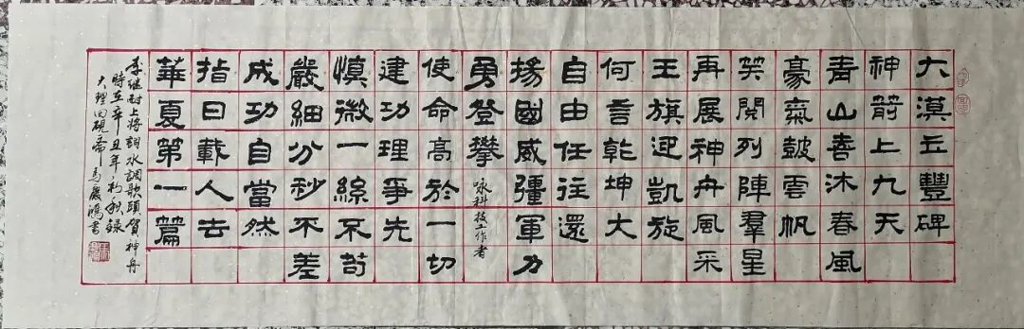 大漠立豐碑
神箭上九天
青山喜沐春風
豪氣鼓雲帆
笑閱列陣羣星
再展神舟風采
王旗迎凱旋
何言乾坤大
自由任往還
揚國威彊軍力
勇登攀 咏科技工作者
使命高於一切
建功理爭先
慎微一絲不苟
嚴細分秒不差
成功自當然
指日載人去
華夏第一篇
李继耐上將詞水調歌頭賀神舟
時在辛丑年初秋錄
大理田硯齋馬嚴曉書